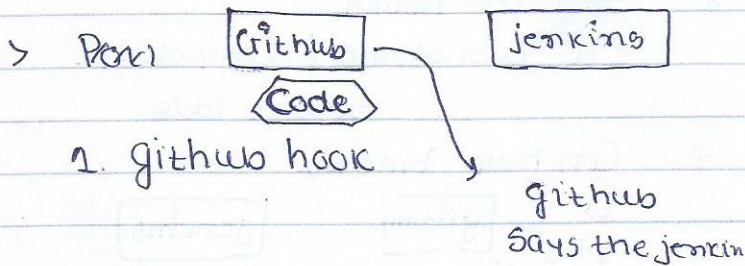 > Github jenkins
Code
1. github hook
github
says the jenkin